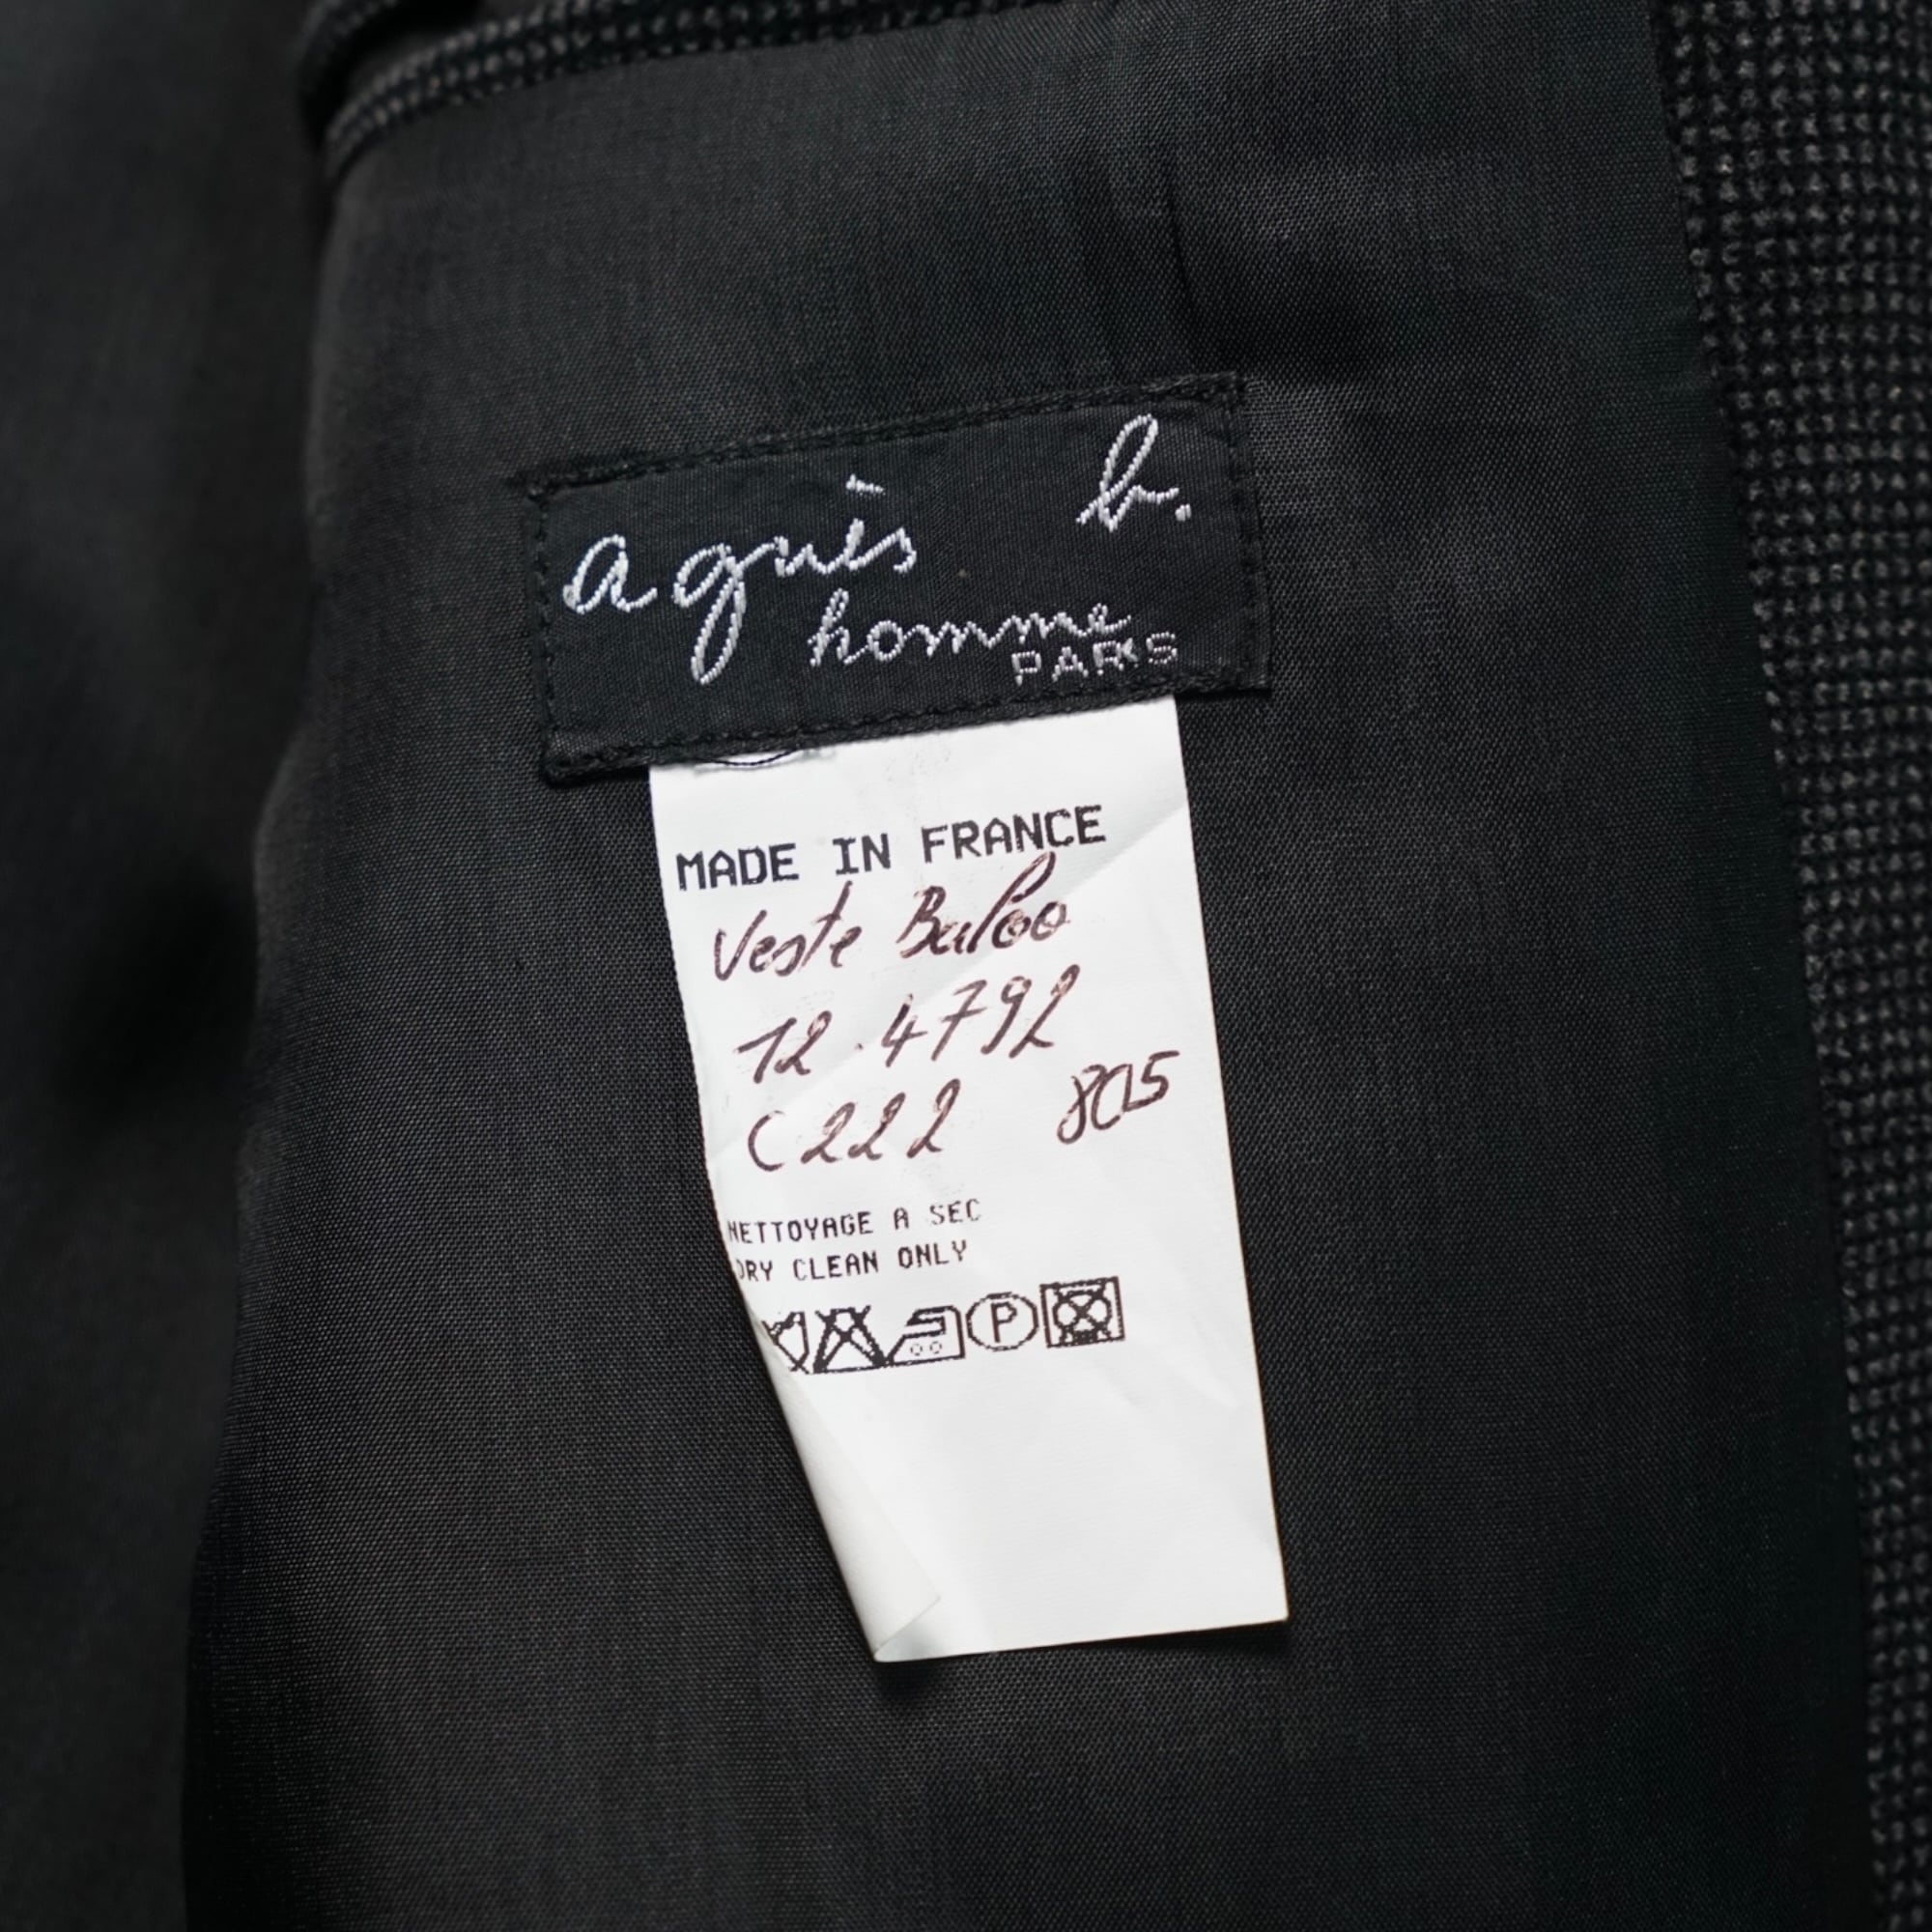 agnès b.
homme
PARIS
MADE IN FRANCE
Veste Baloo
12.4792
C222 805
NETTOYAGE A SEC
DRY CLEAN ONLY
P